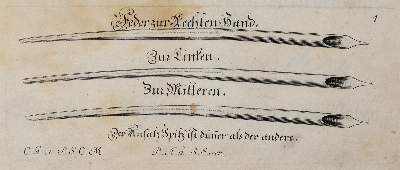 Feder zur Rechten Hand.
1
Zur Lincken.
Zur Mitleren.
Der Ansatz Spitz ist düner als der andere.